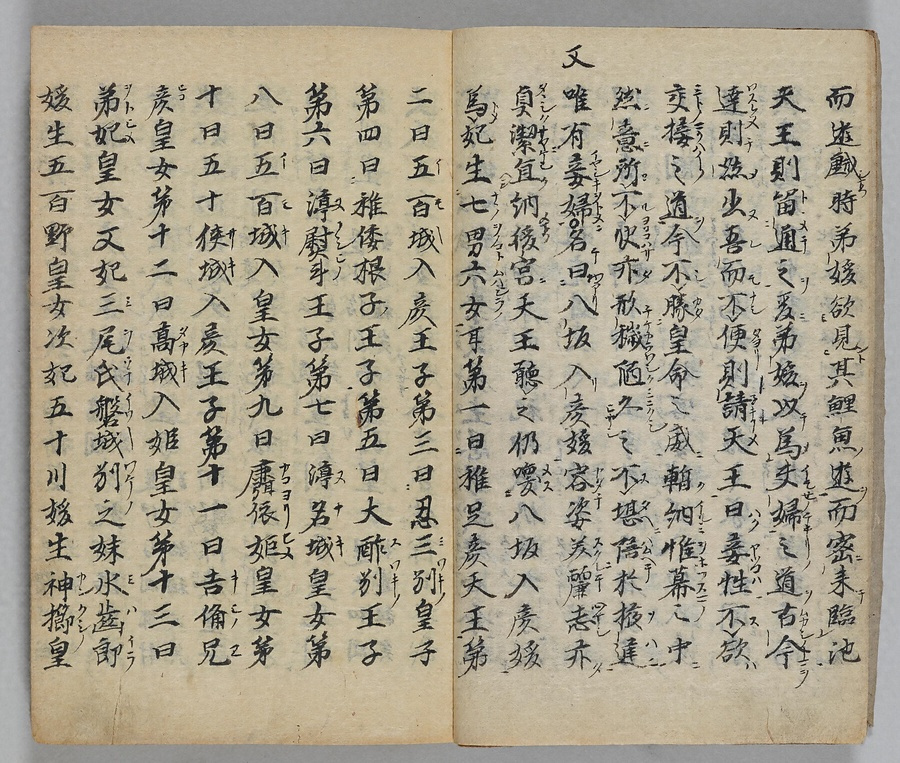 又
而遊戯時弟媛欲見其鯉魚遊而密来臨池
天王則留通之爰弟媛以為夫婦之道古今
達則然出吾而不便則請天王曰妾性不欲
交接之道今不勝皇命之威暫納帷幕之中
然意所不快亦形穢陋久之不堪陪於掖逹
唯有妾婦名曰八坂入彦媛容姿美麗志亦
貞潔宜納後宮天王聴之仍喚八坂入彦媛
為妃生七男六女耳第一曰稚足彦天王第
二曰五百城入彦王子第三曰忍三別皇子
第四曰稚倭根子王子第五曰大酢別王子
第六曰渟熨斗王子第七曰渟名城皇女第
八曰五百城入皇女第九曰麛依姫皇女第
十曰五十侠城入彦王子第十一曰吉備兄
彦皇女第十二曰高城入姫皇女第十三曰
弟妃皇女又妃三尾氏磐城別之妹水歯郎
媛生五百野皇女次妃五十川媛生神櫛皇